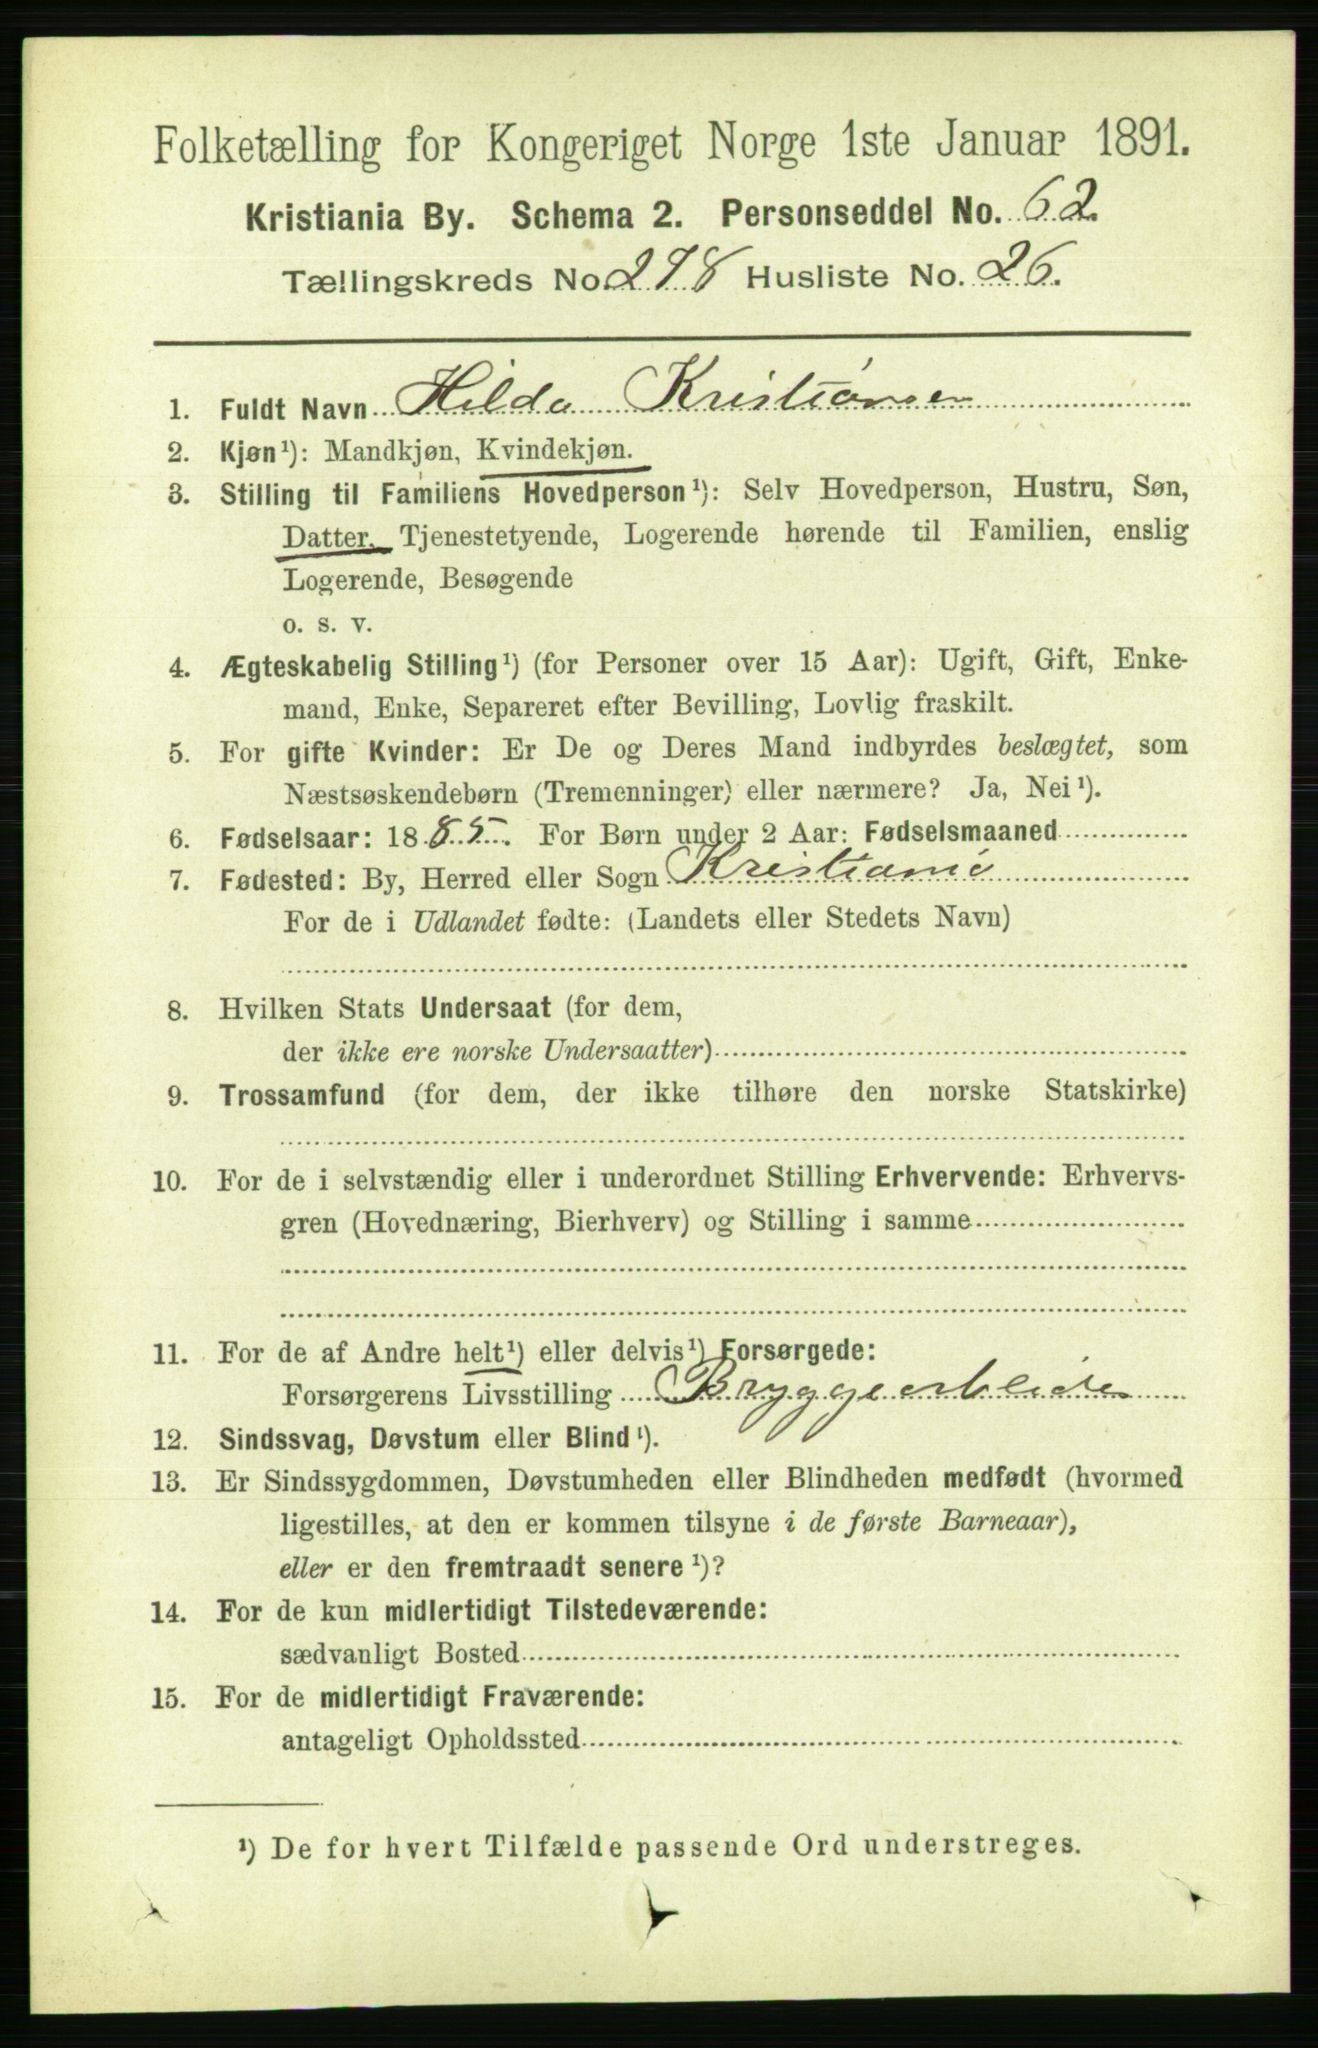 Folketælling for Kongeriget Norge 1ste Januar 1891.
Kristiania By. Schema 2. Personseddel No. 62.
Tællingskreds No. 298 Husliste No. 26.
1. Fuldt Navn Hilda Kristiansen
2. Kjøn¹): Mandkjøn, Kvindekjøn.
3. Stilling til Familiens Hovedperson¹): Selv Hovedperson, Hustru, Søn,
Datter, Tjenestetyende, Logerende hørende til Familien, enslig
Logerende, Besøgende
o. s. v.
4. Ægteskabelig Stilling¹) (for Personer over 15 Aar): Ugift, Gift, Enke-
mand, Enke, Separeret efter Bevilling, Lovlig fraskilt.
5. For gifte Kvinder: Er De og Deres Mand indbyrdes beslægtet, som
Næstsøskendebørn (Tremenninger) eller nærmere? Ja, Nei¹).
6. Fødselsaar: 1885. For Børn under 2 Aar: Fødselsmaaned
7. Fødested: By, Herred eller Sogn Kristiania
For de i Udlandet fødte: (Landets eller Stedets Navn)
8. Hvilken Stats Undersaat (for dem,
der ikke ere norske Undersaatter)
9. Trossamfund (for dem, der ikke tilhøre den norske Statskirke)
10. For de i selvstændig eller i underordnet Stilling Erhvervende: Erhvervs-
gren (Hovednæring, Bierhverv) og Stilling i samme
11. For de af Andre helt¹) eller delvis¹) Forsørgede:
Forsørgerens Livsstilling Bryggearbeider
12. Sindssvag, Døvstum eller Blind¹).
13. Er Sindssygdommen, Døvstumheden eller Blindheden medfødt (hvormed
ligestilles, at den er kommen tilsyne i de første Barneaar),
eller er den fremtraadt senere¹)?
14. For de kun midlertidigt Tilstedeværende:
sædvanligt Bosted
15. For de midlertidigt Fraværende:
antageligt Opholdssted
¹) De for hvert Tilfælde passende Ord understreges.